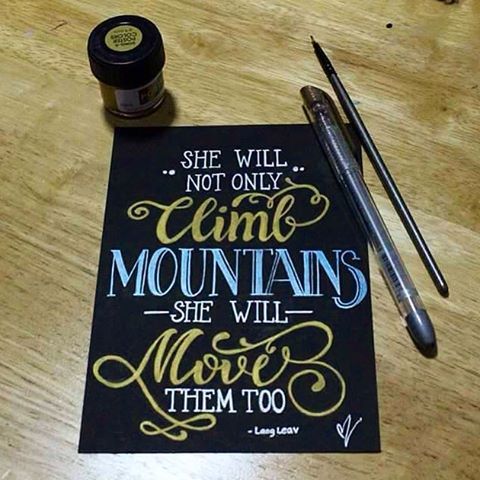 POSTER
COLORS
SHE WILL
NOT ONLY
Climb
MOUNTAINS
—SHE WILL—
Move
THEM TOO
- Lang Leav